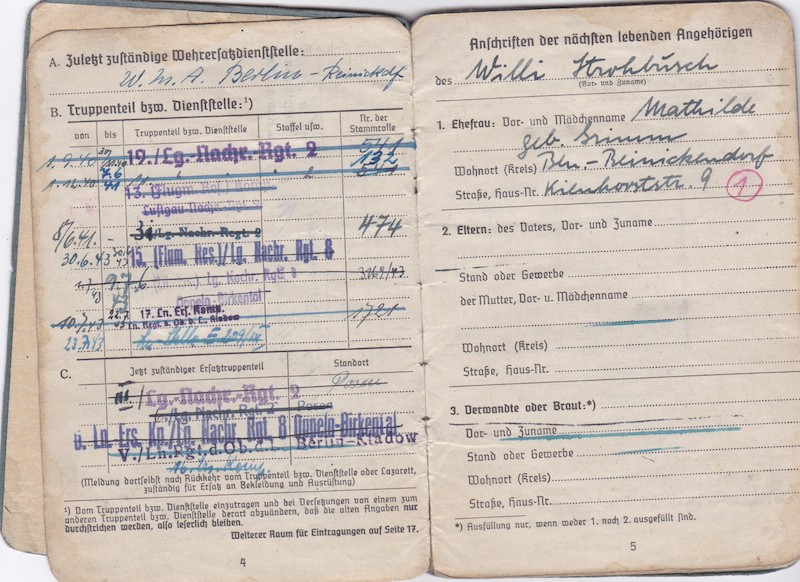 A. Zuletzt zuständige Wehrersatzdienststelle:
W. M. A. Berlin-Reinickdf
B. Truppenteil bzw. Dienststelle:¹)
von bis Truppenteil bzw. Dienststelle Staffel usw. Nr. der Stammrolle
1. 9. 40 19./Lg.-Nachr. Rgt. 2 541
132
1. 12. 40 7.6 41 " " " 2 541
Luftgau-Nachr.-Rgt.
8/6.41. - 3./Lg.-Nachr.-Regt. 2 474
30.6.43 15. (Flum. Res.)/Lg. Nachr. Rgt. 8
Lg. Nachr. Rgt. 8 3168/43
Oppeln-Birkental
10.7.43 17. Ln. Ers. Komp. 1721
Ln. Regt. d. Ob. d. L. Kladow
23.7.43
C. Jetzt zuständiger Ersatztruppenteil Standort
III./Lg.-Nachr.-Rgt. 2 Posen
Lg. Nachr. Rgt. 2 Posen
6. Ln. Ers. Kp./Lg. Nachr. Rgt 8 Oppeln-Birkental
V./Ln.Rgt.d.Ob.d.L. Berlin-Kladow
(Meldung dortselbst nach Rückkehr vom Truppenteil bzw. Dienststelle oder Lazarett,
zuständig für Ersatz an Bekleidung und Ausrüstung)
¹) Vom Truppenteil bzw. Dienststelle einzutragen und bei Versetzungen von einem zum
anderen Truppenteil bzw. Dienststelle derart abzuändern, daß die alten Angaben nur
durchstrichen werden, also leserlich bleiben.
Weiterer Raum für Eintragungen auf Seite 17.
4
Anschriften der nächsten lebenden Angehörigen
des Willi Strohbusch
(Vor- und Zuname)
1. Ehefrau: Vor- und Mädchenname Mathilde
geb. Grimm
Wohnort (Kreis) Bln.-Reinickendorf
Straße, Haus-Nr. Kienhorststr. 9 1
2. Eltern: des Vaters, Vor- und Zuname
Stand oder Gewerbe
der Mutter, Vor- u. Mädchenname
Wohnort (Kreis)
Straße, Haus-Nr.
3. Verwandte oder Braut:*)
Vor- und Zuname
Stand oder Gewerbe
Wohnort (Kreis)
Straße, Haus-Nr.
*) Ausfüllung nur, wenn weder 1. noch 2. ausgefüllt sind.
5